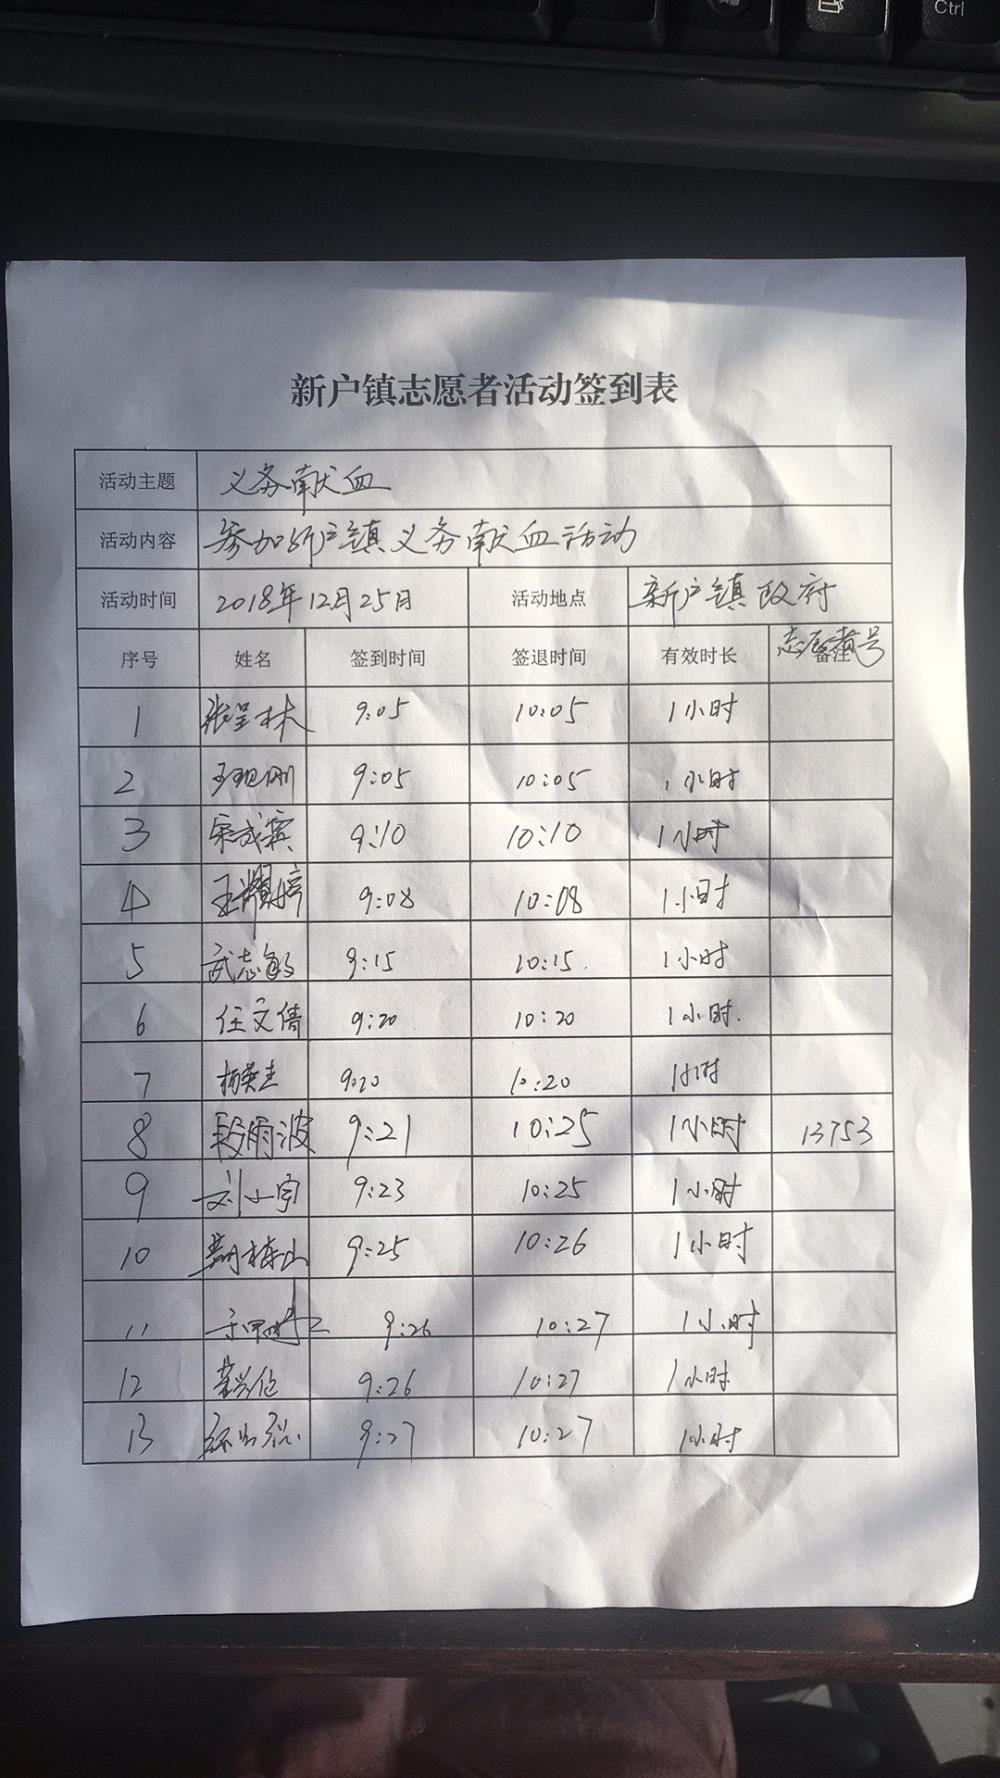 Ctrl
新户镇志愿者活动签到表
活动主题 义务献血
活动内容 参加新户镇义务献血活动
活动时间 2018年12月25日 活动地点 新户镇政府
序号 姓名 签到时间 签退时间 有效时长 志愿者号
1 张呈林 9:05 10:05 1小时
2 9:05 10:05 1小时
3 9:10 10:10 1小时
4 9:08 10:08 1小时
5 武志敏 9:15 10:15
1小时
6 任文倩 9:20 10:20 1小时.
7 杨英杰 9:20 10:20 1小时
8 段雨波 9:21 10:25 1小时 13753
9 刘小宇 9:23 10:25 1小时
10 9:25 10:26 1小时
11 9:26 10:27 1小时
12 9:26 10:27 1小时
13 9:27 10:27 1小时